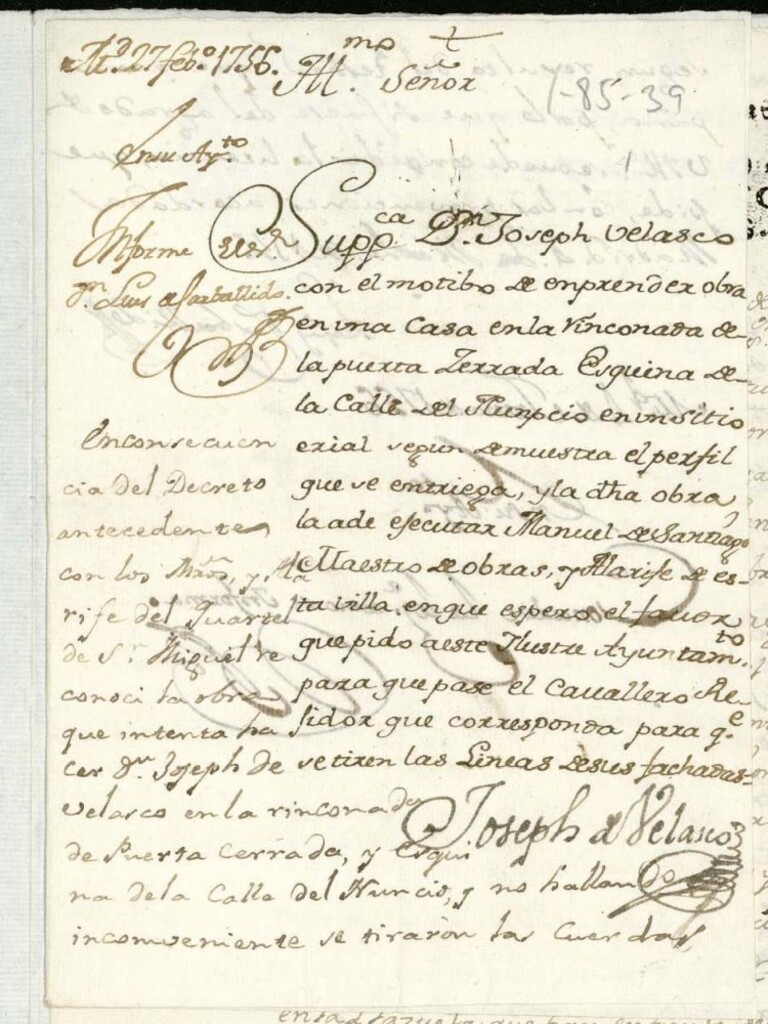 M.d 27 feb.o 1756.
+
Ill.mo Señor
1-85-39
En su Ay.to
Informe el s.r
d.n Luis de Carballido.
Supp.ca D.n Joseph Velasco
con el motibo de enprender obra
en una Casa en la Rinconada de
la puerta Zerrada Esquina de
la Calle del Nunpcio en un sitio
erial segun demuestra el perfil
que se entriega, y la dha obra
la a de ejecutar Manuel de Santiago
Maestro de obras, y Alarife de es-
ta villa, en que espero el favor
que pido a este Ilustre Ayuntam.to
para que pase el Cavallero Re-
sidor que corresponda para q.e
se tiren las Lineas de sus fachadas-
Joseph de Velasco
En consecuen
cia del Decreto
antecedente
con los Mros, y Ala
rife del Quartel
de S.n Miguel re
conoci la obra
que intenta ha
cer d.n Joseph de
Velasco en la rinconada
de Puerta Cerrada, y Esqui
na de la Calle del Nuncio, y no hallando
inconveniente se tiraron las Cuerdas